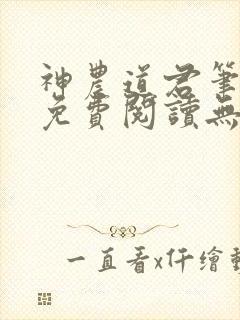 神農道君筆
免費閱讀無
一直看x仟繪動